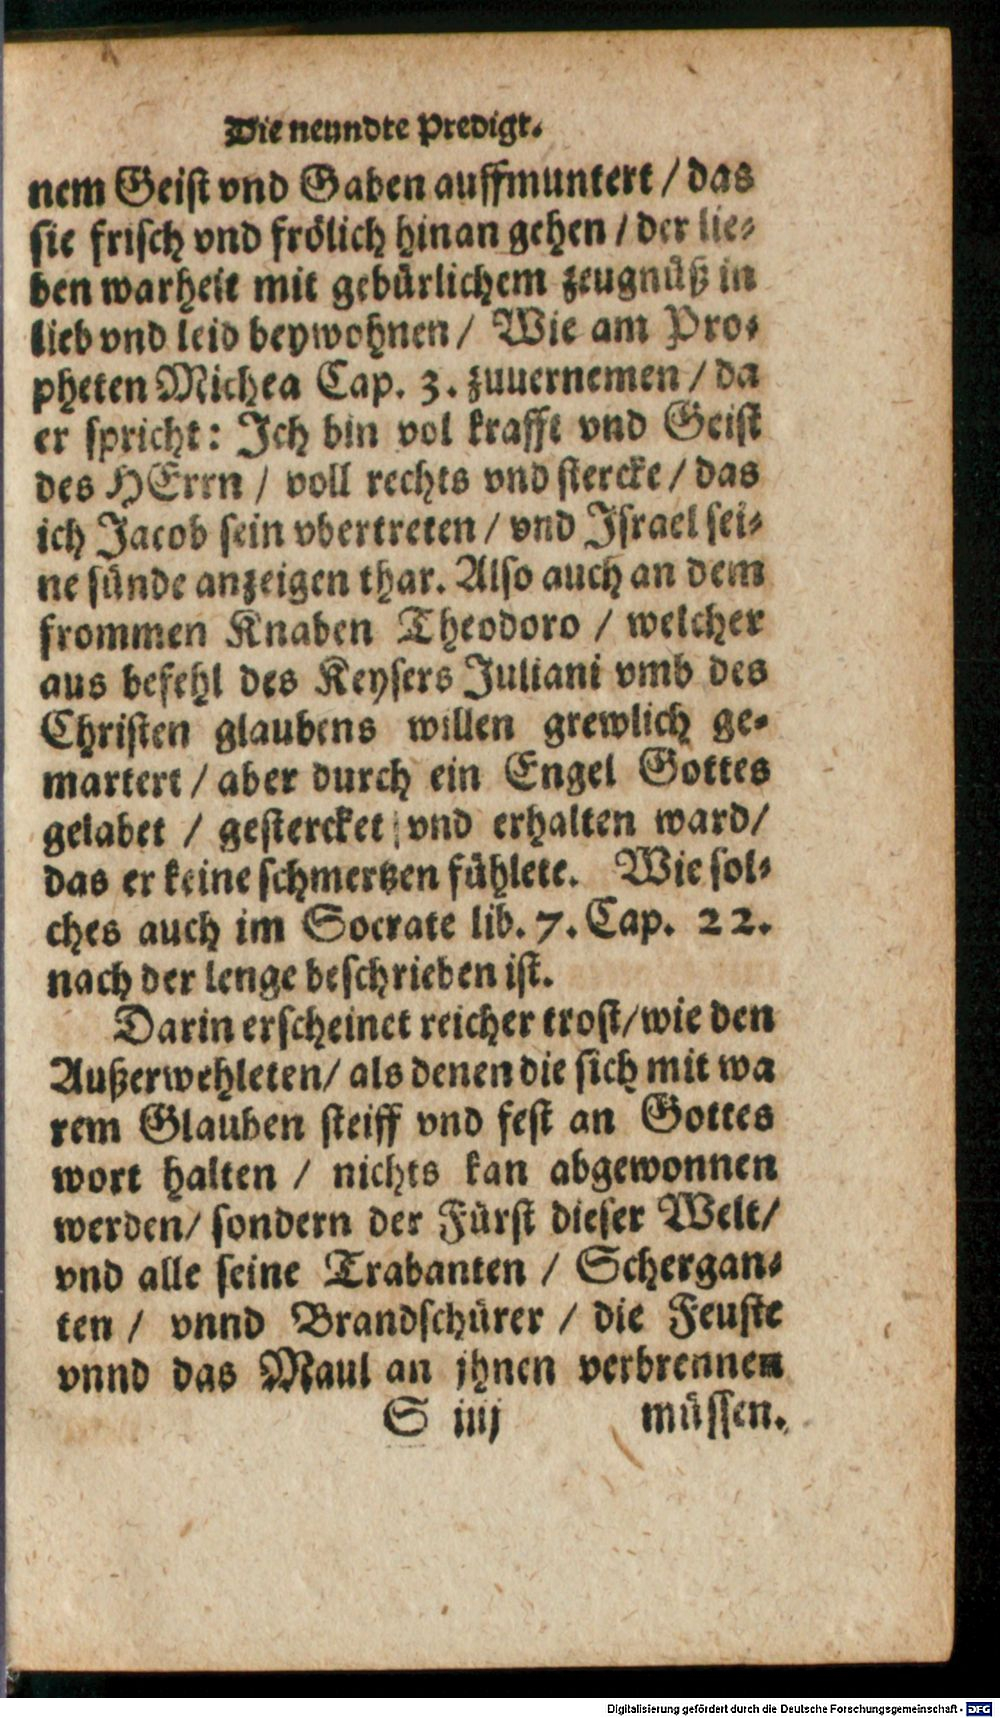 Die neundte Predigt.
nem Geist vnd Gaben auffmuntert / das
sie frisch vnd frölich hinan gehen / der lie-
ben warheit mit gebürlichem zeugnüß in
lieb vnd leid beywohnen / Wie am Pro-
pheten Michea Cap. 3. zuuernemen / da
er spricht: Jch bin vol krafft vnd Geist
des HErrn / voll rechts vnd stercke / das
ich Jacob sein vbertreten / vnd Jsrael sei-
ne sünde anzeigen thar. Also auch an dem
frommen Knaben Theodoro / welcher
aus befehl des Keysers Juliani vmb des
Christen glaubens willen grewlich ge-
martert / aber durch ein Engel Gottes
gelabet / gestercket / vnd erhalten ward /
das er keine schmertzen fühlete. Wie sol-
ches auch im Socrate lib. 7. Cap. 22.
nach der lenge beschrieben ist.
Darin erscheinet reicher trost / wie den
Außerwehleten / als denen die sich mit wa
rem Glauben steiff vnd fest an Gottes
wort halten / nichts kan abgewonnen
werden / sondern der Fürst dieser Welt /
vnd alle seine Trabanten / Schergan-
ten / vnnd Brandschürer / die Feuste
vnnd das Maul an jhnen verbrennen
S iiij müssen.
Digitalisierung gefördert durch die Deutsche Forschungsgemeinschaft - DFG